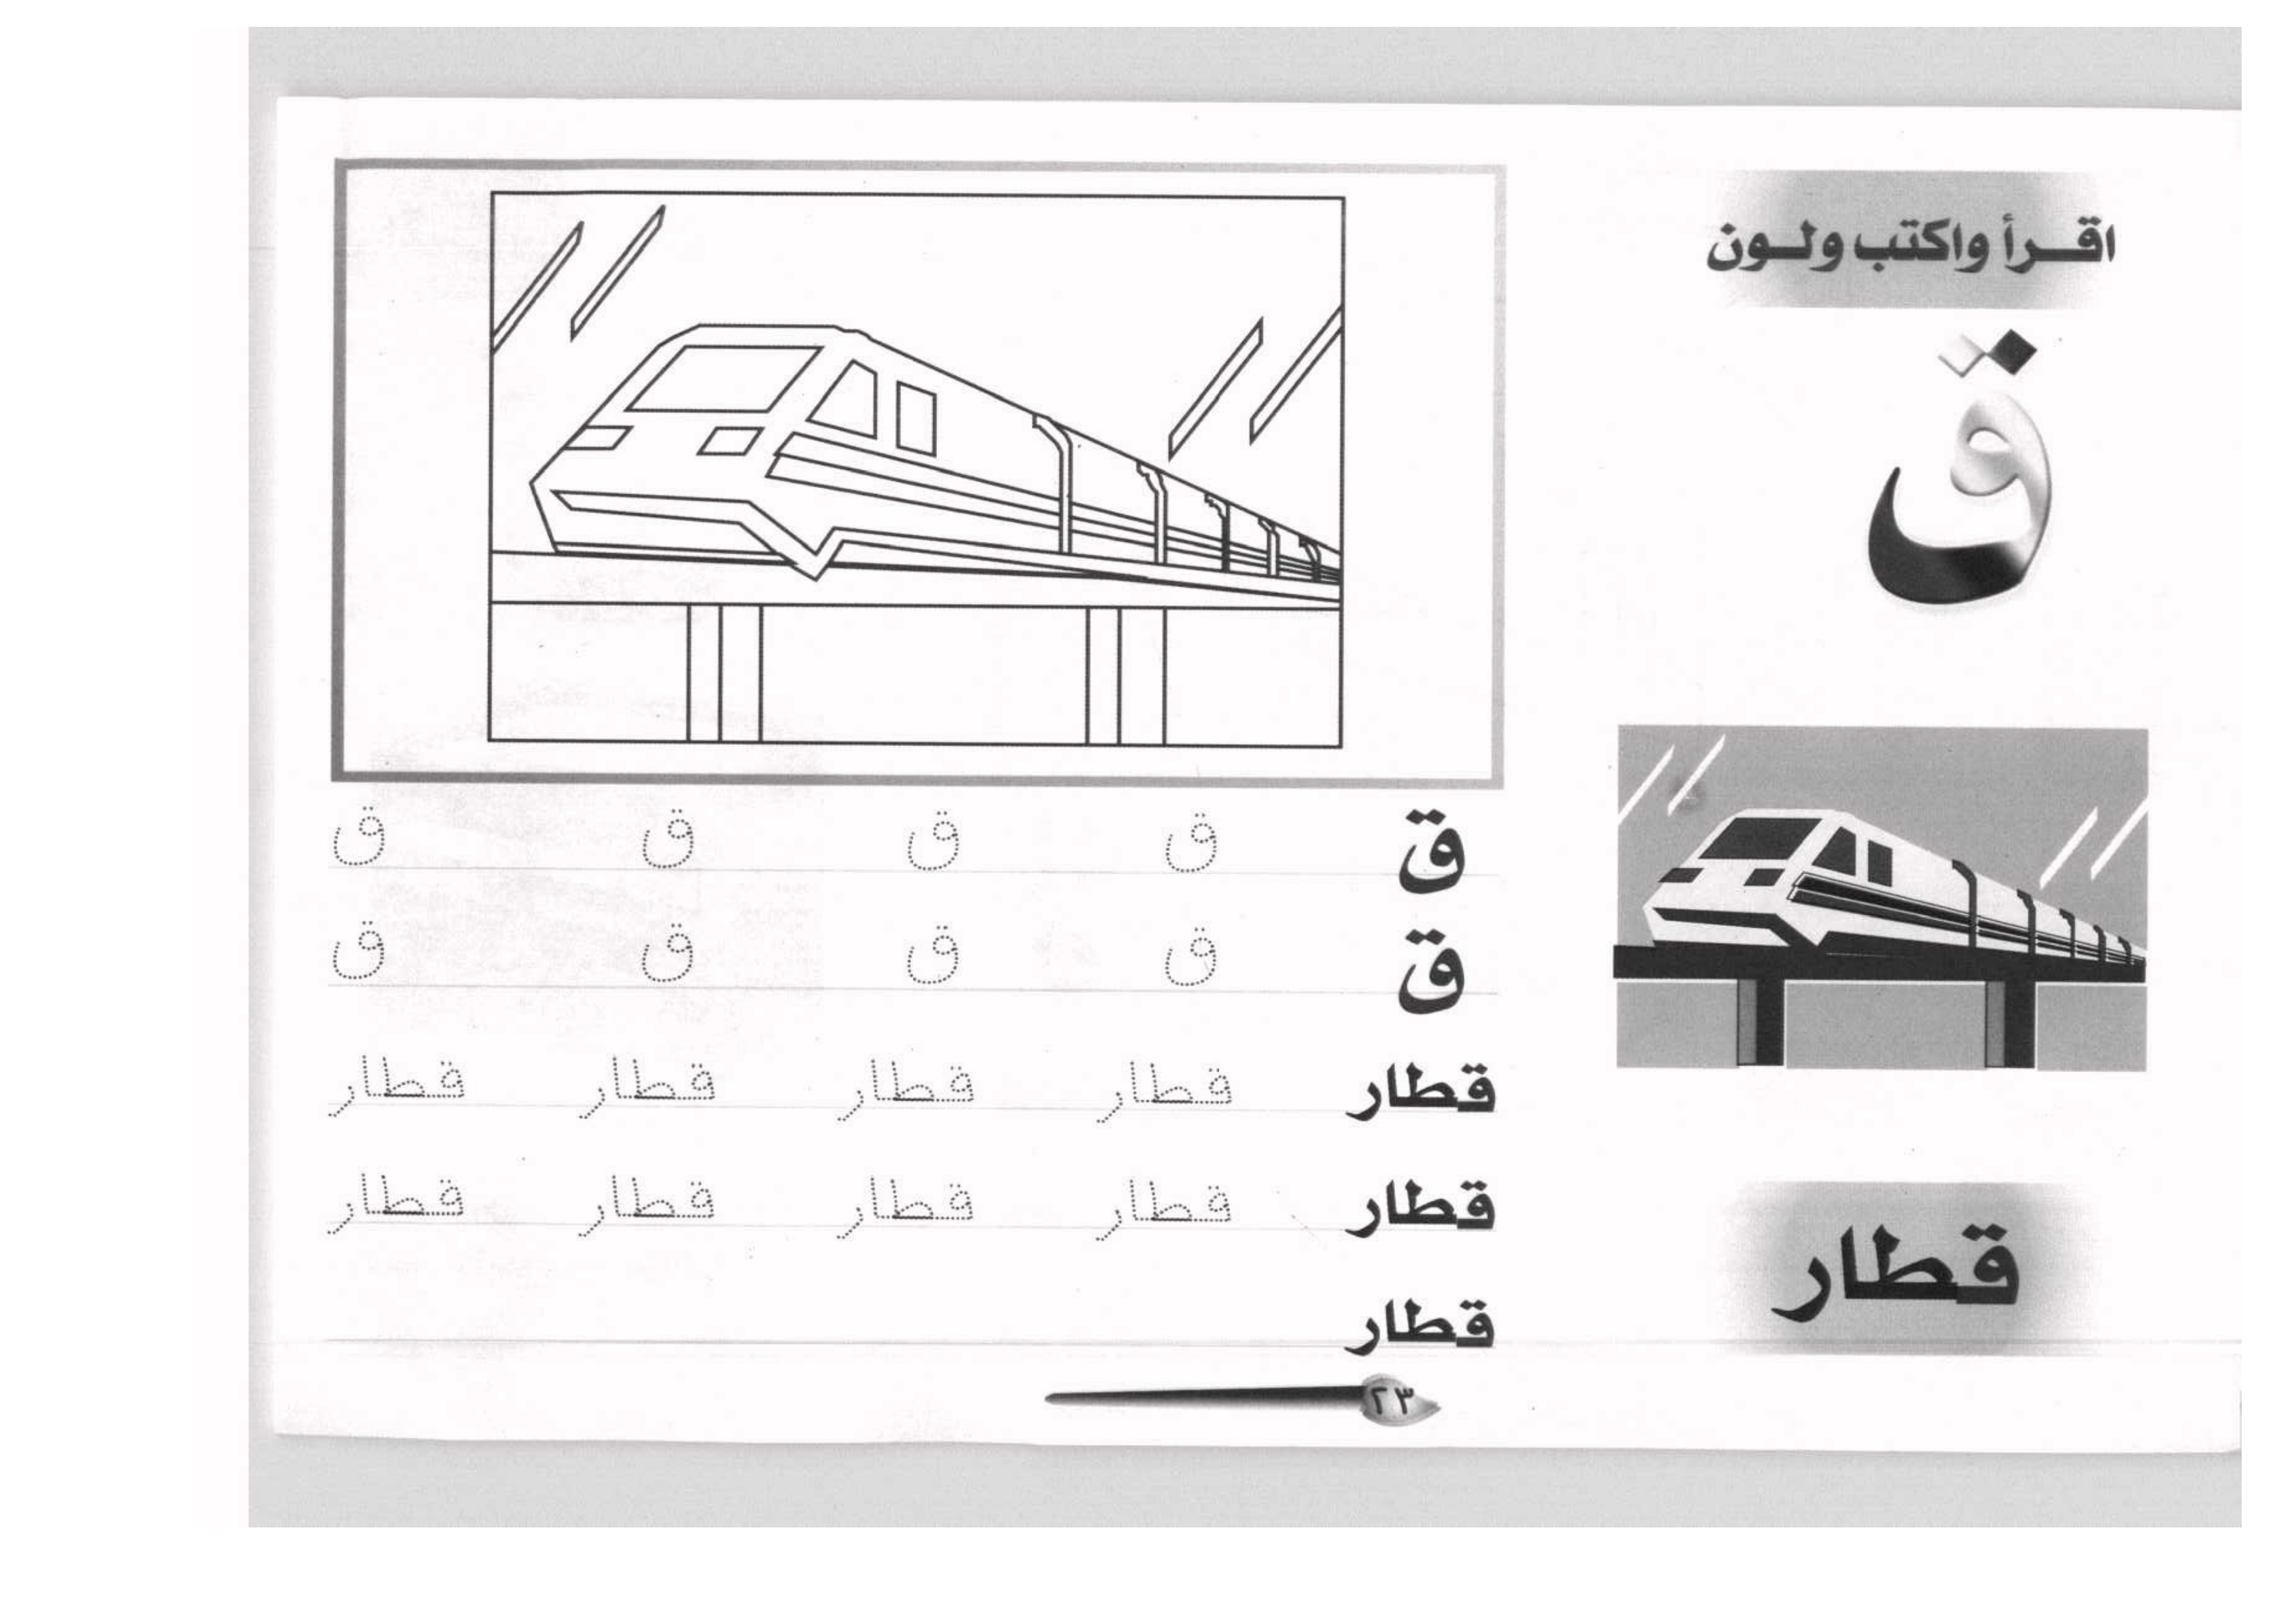 اقـرأ واكتب ولـون
ق
قطار
ق ق ق ق ق
ق ق ق ق ق
قطار قطار قطار قطار قطار
قطار قطار قطار قطار قطار
قطار
٢٣